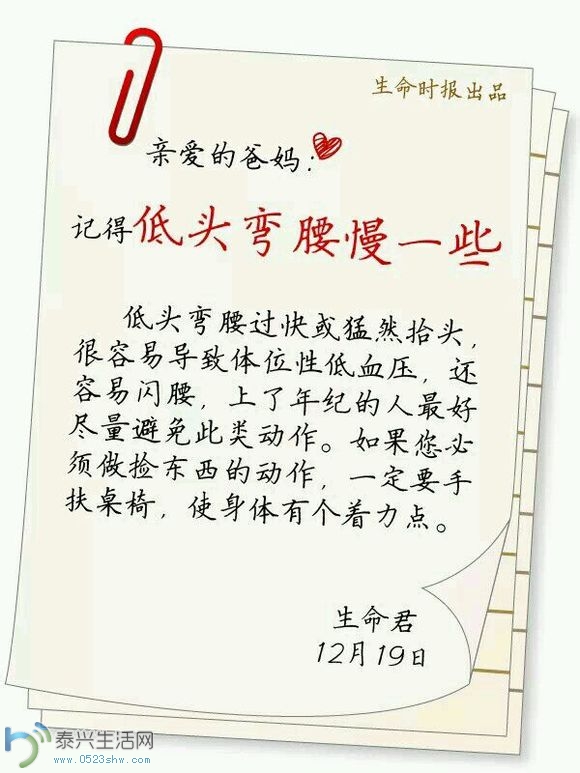 生命时报出品
亲爱的爸妈：
记得低头弯腰慢一些
低头弯腰过快或猛然抬头，
很容易导致体位性低血压，还
容易闪腰，上了年纪的人最好
尽量避免此类动作。如果您必
须做捡东西的动作，一定要手
扶桌椅，使身体有个着力点。
生命君
12月19日
泰兴生活网
www.0523shw.com